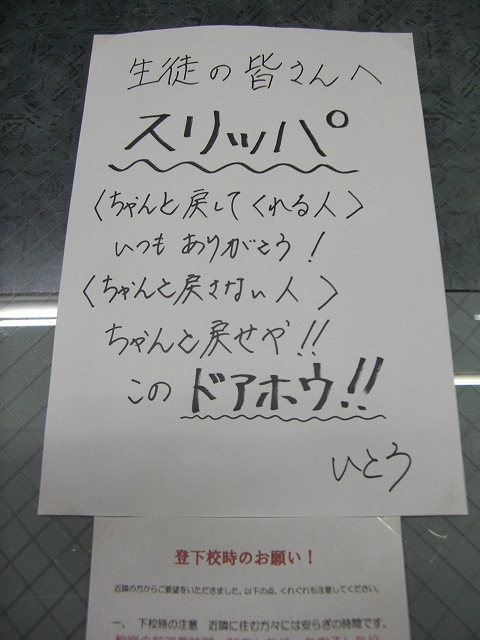 生徒の皆さんへ
スリッパ
〈ちゃんと戻してくれる人〉
いつもありがとう!
〈ちゃんと戻さない人〉
ちゃんと戻せや!!
このドアホウ!!
いとう
登下校時のお願い!
近隣の方からご要望をいただきました。以下の点、くれぐれも注意してください。
一、下校時の注意 近隣に住む方々には安らぎの時間です。